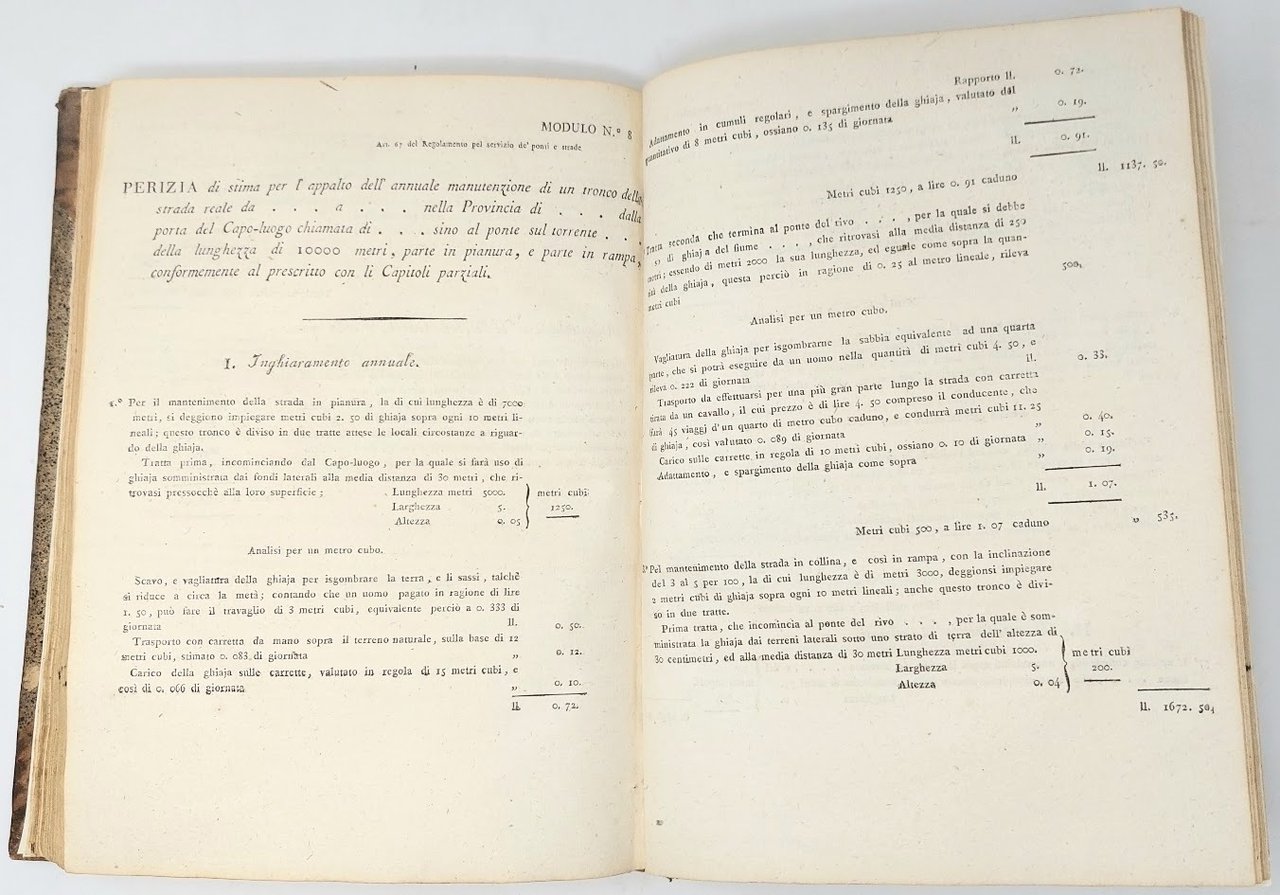 MODULO N.º 8
Art. 67 del Regolamento pel servizio de' ponti e strade
PERIZIA di stima per l'appalto dell'annuale manutenzione di un tronco della
strada reale da . . . a . . . nella Provincia di . . . dalla
porta del Capo-luogo chiamata di . . . sino al ponte sul torrente . . .
della lunghezza di 10000 metri, parte in pianura, e parte in rampa,
conformemente al prescritto con li Capitoli parziali.
I. Inghiaramento annuale.
1.º Per il mantenimento della strada in pianura, la di cui lunghezza è di 7000
metri, si deggiono impiegare metri cubi 2. 50 di ghiaja sopra ogni 10 metri li-
neali; questo tronco è diviso in due tratte attese le locali circostanze a riguar-
do della ghiaja.
Tratta prima, incominciando dal Capo-luogo, per la quale si farà uso di
ghiaja somministrata dai fondi laterali alla media distanza di 30 metri, che ri-
trovasi pressocchè alla loro superficie; Lunghezza metri 5000. metri cubi
Larghezza 5. 1250.
Altezza 0. 05
Analisi per un metro cubo.
Scavo, e vagliatura della ghiaja per isgombrare la terra, e li sassi, talchè
si riduce a circa la metà; contando che un uomo pagato in ragione di lire
1. 50, può fare il travaglio di 3 metri cubi, equivalente perciò a 0. 333 di
giornata ll. 0. 50.
Trasporto con carretta da mano sopra il terreno naturale, sulla base di 12
metri cubi, stimato 0. 083 di giornata „ 0. 12.
Carico della ghiaja sulle carrette, valutato in regola di 15 metri cubi, e
così di 0. 066 di giornata „ 0. 10.
ll. 0. 72.
Rapporto ll. 0. 72.
Adattamento in cumuli regolari, e spargimento della ghiaja, valutato dal
quantitativo di 8 metri cubi, ossiano 0. 135 di giornata „ 0. 19.
ll. 0. 91.
Metri cubi 1250, a lire 0. 91 caduno ll. 1137. 50.
Tratta seconda che termina al ponte del rivo . . . . , per la quale si debbe
di ghiaja del fiume . . . . , che ritrovasi alla media distanza di 250
metri; essendo di metri 2000 la sua lunghezza, ed eguale come sopra la quan-
tità della ghiaja, questa perciò in ragione di 0. 25 al metro lineale, rileva
metri cubi 500.
Analisi per un metro cubo.
Vagliatura della ghiaja per isgombrarne la sabbia equivalente ad una quarta
parte, che si potrà eseguire da un uomo nella quantità di metri cubi 4. 50, e
rileva 0. 222 di giornata ll. 0. 33.
Trasporto da effettuarsi per una più gran parte lungo la strada con carretta
tirata da un cavallo, il cui prezzo è di lire 4. 50 compreso il conducente, che
farà 45 viaggj d'un quarto di metro cubo caduno, e condurrà metri cubi 11. 25
di ghiaja, così valutato 0. 089 di giornata „ 0. 40.
Carico sulle carrette in regola di 10 metri cubi, ossiano 0. 10 di giornata „ 0. 15.
Adattamento, e spargimento della ghiaja come sopra „ 0. 19.
ll. 1. 07.
Metri cubi 500, a lire 1. 07 caduno „ 535.
Pel mantenimento della strada in collina, e così in rampa, con la inclinazione
del 3 al 5 per 100, la di cui lunghezza è di metri 3000, deggionsi impiegare
2 metri cubi di ghiaja sopra ogni 10 metri lineali; anche questo tronco è divi-
so in due tratte.
Prima tratta, che incomincia al ponte del rivo . . . . , per la quale è som-
ministrata la ghiaja dai terreni laterali sotto uno strato di terra dell'altezza di
30 centimetri, ed alla media distanza di 30 metri Lunghezza metri cubi 1000. metri cubi
Larghezza 5. 200.
Altezza 0. 04
ll. 1672. 50.